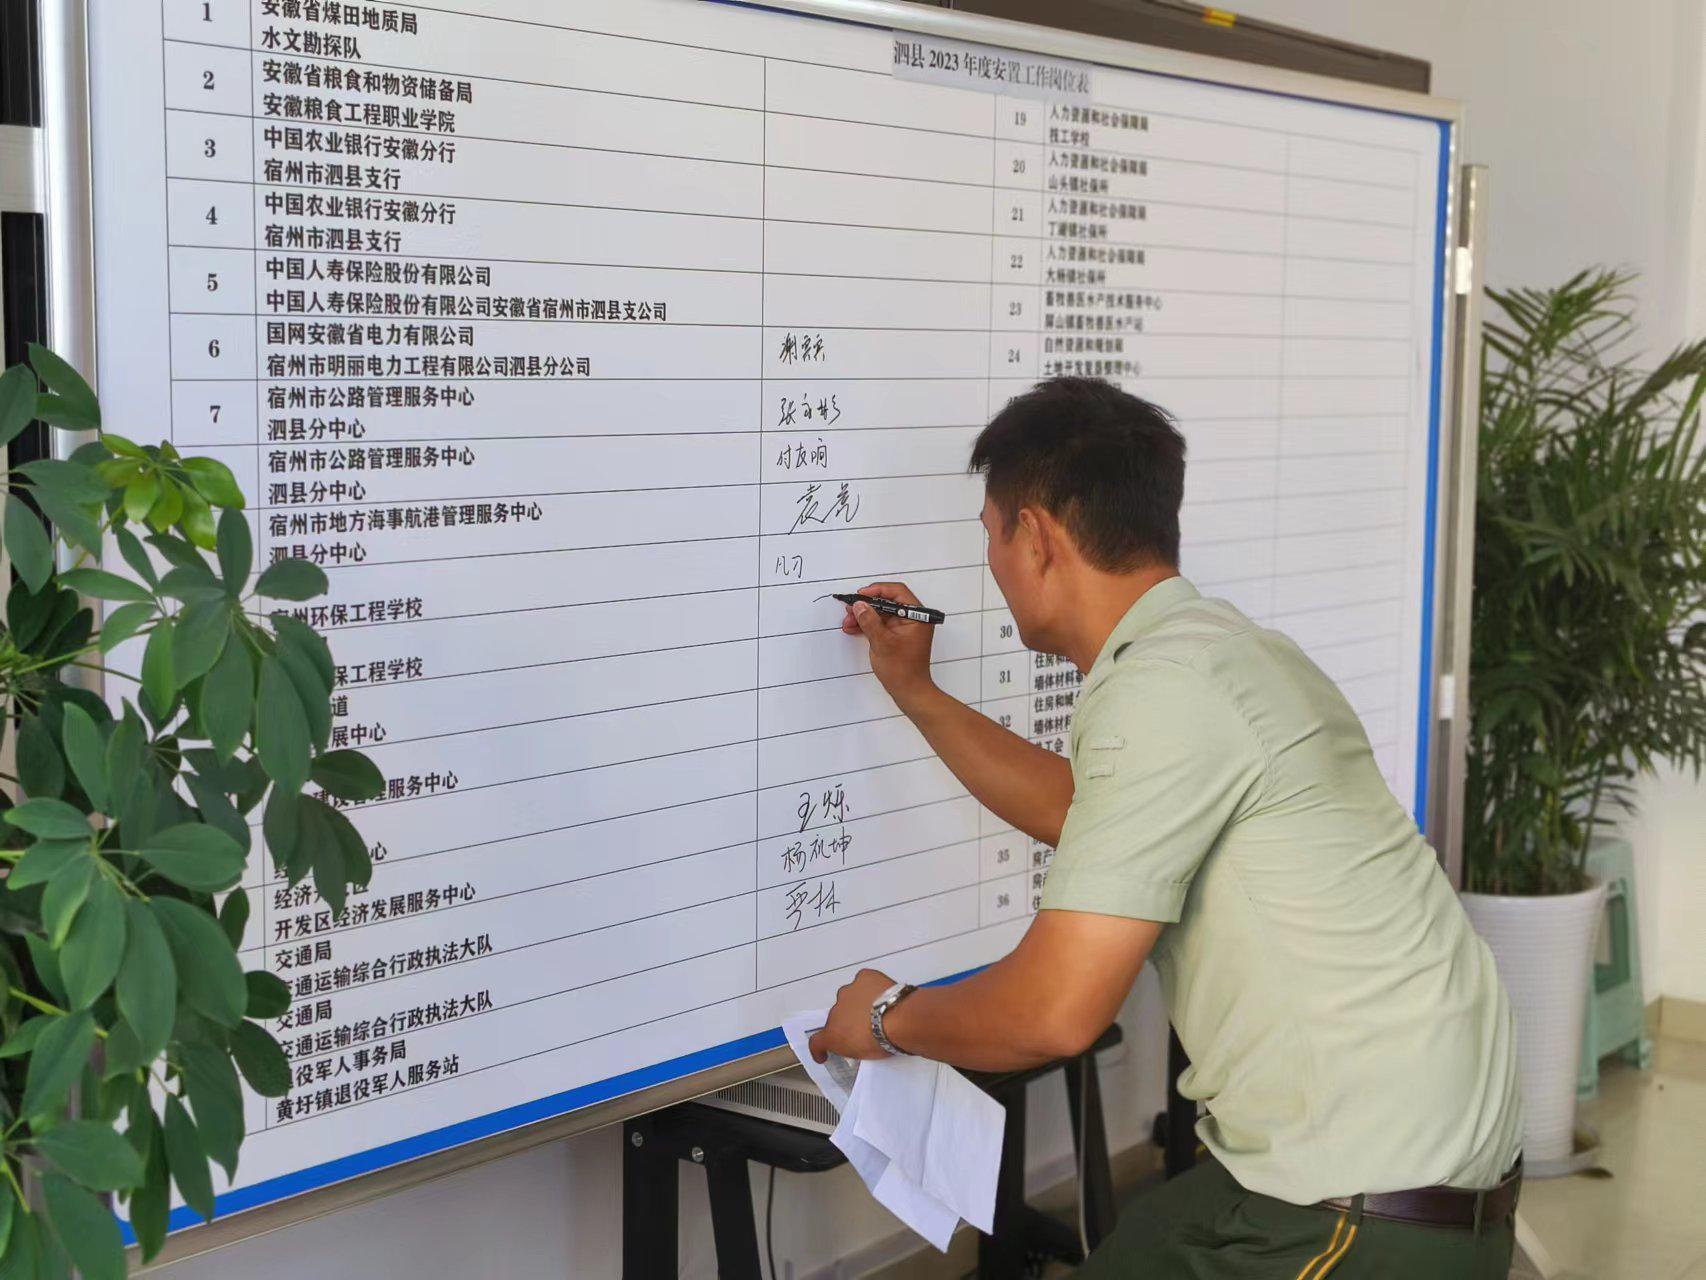 泗县2023年度安置工作岗位表
1
安徽省煤田地质局
水文勘探队
2
安徽省粮食和物资储备局
安徽粮食工程职业学院
3
中国农业银行安徽分行
宿州市泗县支行
4
中国农业银行安徽分行
宿州市泗县支行
5
中国人寿保险股份有限公司
中国人寿保险股份有限公司安徽省宿州市泗县支公司
6
国网安徽省电力有限公司
宿州市明丽电力工程有限公司泗县分公司
7
宿州市公路管理服务中心
泗县分中心
宿州市公路管理服务中心
泗县分中心
付友响
宿州市地方海事航港管理服务中心
泗县分中心
袁虎
宿州环保工程学校
保工程学校
道
展中心
建设管理服务中心
王烁
心
杨礼坤
经济
区
开发区经济发展服务中心
严林
交通局
交通运输综合行政执法大队
交通局
交通运输综合行政执法大队
退役军人事务局
黄圩镇退役军人服务站
19
人力资源和社会保障局
技工学校
20
人力资源和社会保障局
山头镇社保所
21
人力资源和社会保障局
丁湖镇社保所
22
人力资源和社会保障局
大杨镇社保所
23
畜牧兽医水产技术服务中心
屏山镇畜牧兽医水产站
24
自然资源和规划局
土地开发复垦整理中心
30
住房和
31
墙体材料革
住房和城
32
墙体材料
总工会
35
房产
36
住